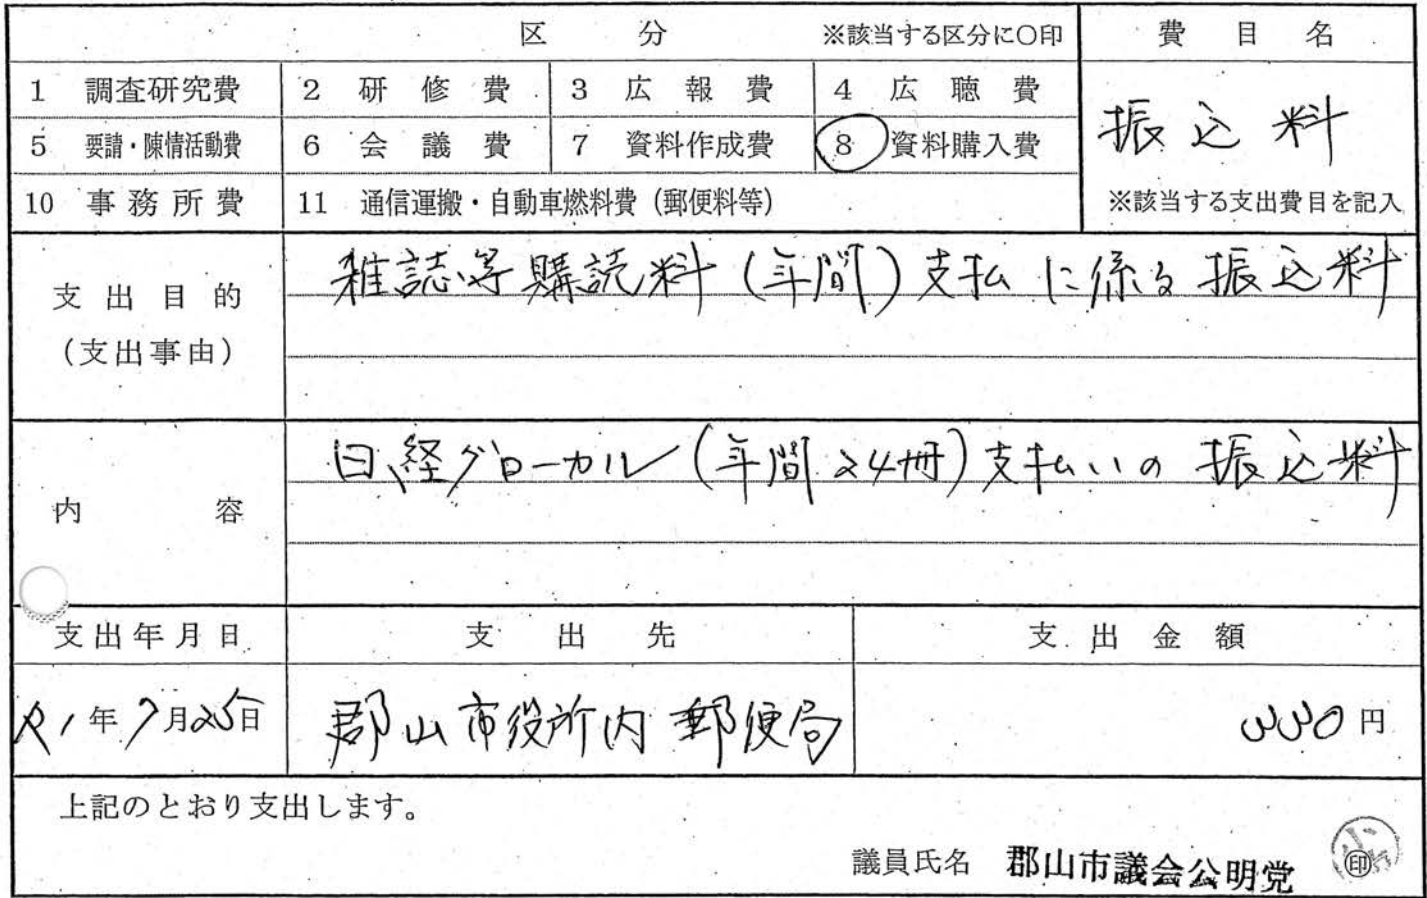 区 分 ※該当する区分に〇印 費 目 名
1 調査研究費 2 研 修 費 3 広 報 費 4 広 聴 費
振込料
5 要請・陳情活動費 6 会 議 費 7 資料作成費 8 資料購入費
10 事務所費 11 通信運搬・自動車燃料費(郵便料等) ※該当する支出費目を記入
支出目的
(支出事由)
雑誌等購読料(年間)支払に係る振込料
内 容
日経グローカル(年間24冊)支払いの振込料
支出年月日 支 出 先 支 出 金 額
R1年7月25日 郡山市役所内郵便局 330円
上記のとおり支出します。
議員氏名 郡山市議会公明党 ㊞